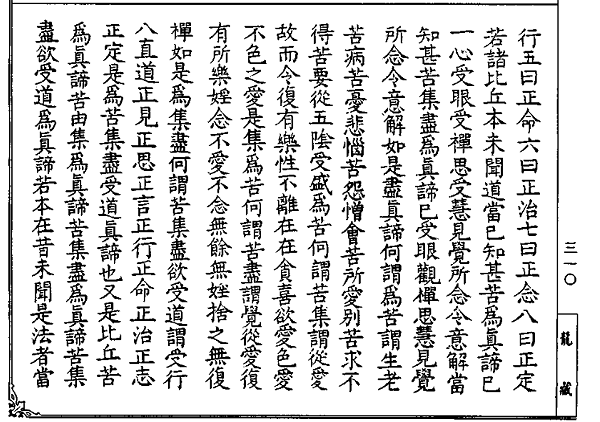 行五曰正命六曰正治七曰正念八曰正定
若諸比丘本未聞道當已知甚苦為真諦已
一心受眼受禪思受慧見覺所念令意解當
知甚苦集盡為真諦已受眼觀禪思慧見覺
所念令意解如是盡真諦何謂為苦謂生老
苦病苦憂悲惱苦怨憎會苦所愛別苦求不
得苦要從五陰受盛為苦何謂苦集謂從愛
故而令復有樂性不離在在貪喜欲愛色愛
不色之愛是集為苦何謂苦盡謂覺從愛復
有所樂婬念不愛不念無餘無婬捨之無復
禪如是為集盡何謂苦集盡欲受道謂受行
八直道正見正思正言正行正命正治正志
正定是為苦集盡受道真諦也又是比丘苦
為真諦苦由集為真諦苦集盡為真諦苦集
盡欲受道為真諦若本在昔未聞是法者當
三一〇
龍藏